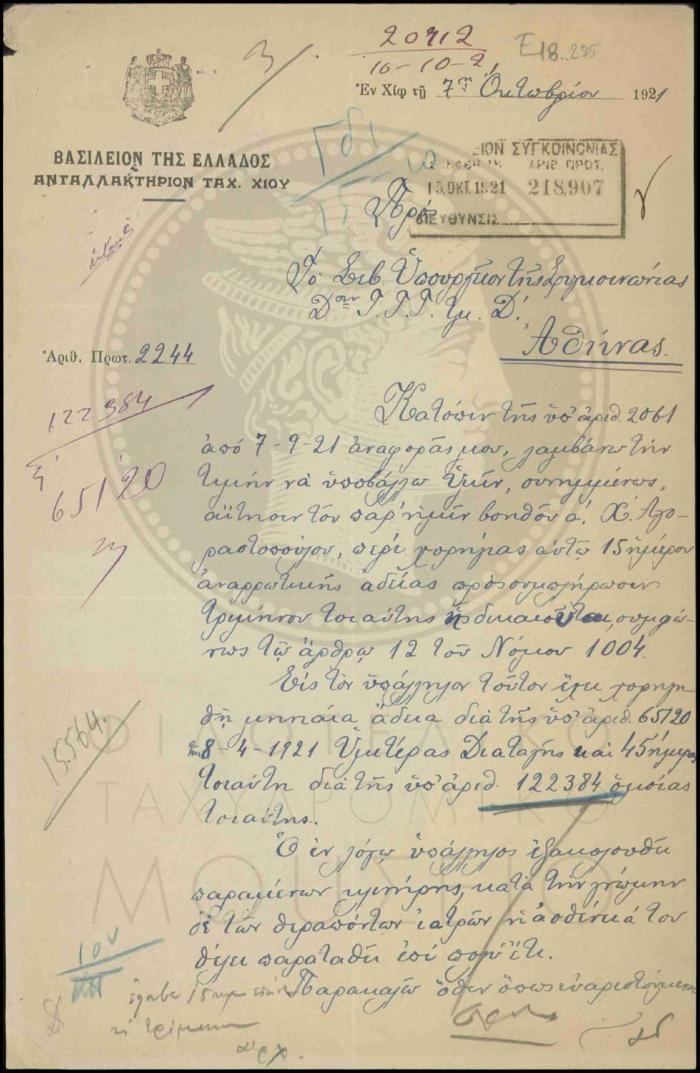 20712
16-10-21
E18.295
Ἐν Χίῳ τῇ 7ῃ Ὀκτωβρίου 1921
ΒΑΣΙΛΕΙΟΝ ΤΗΣ ΕΛΛΑΔΟΣ
ΑΝΤΑΛΛΑΚΤΗΡΙΟΝ ΤΑΧ. ΧΙΟΥ
ΕΙΟΝ ΣΥΓΚΟΙΝΩΝΙΑΣ
ΑΡΙΘ ΠΡΩΤ.
15.ΟΚΤ.1921 218.907
ΔΙΕΥΘΥΝΣΙΣ
Πρὸς
Τὸ Σεβ. Ὑπουργεῖον τῆς Συγκοινωνίας
Δσιν Τ.Τ.Τ. Τμ. Δ'.
Ἀθήνας.
Ἀριθ. Πρωτ. 2244
122384
65120
Κατόπιν τῆς ὑπ' ἀριθ. 2061
ἀπὸ 7-9-21 ἀναφορᾶς μου, λαμβάνω τὴν
τιμὴν νὰ ὑποβάλλω Ὑμῖν, συνημμένως,
αἴτησιν τοῦ παρ' ἡμῖν βοηθοῦ α'. Χ. Ἀγο-
ραστοπούλου, περὶ χορηγίας αὐτῷ 15 ἡμέρου
ἀναρρωτικῆς ἀδείας πρὸς συμπλήρωσιν
τριμήνου τοιαύτης ἧς δικαιοῦται, συμφώ-
νως τῷ ἄρθρῳ 12 τοῦ Νόμου 1004.
Εἰς τὸν ὑπάλληλον τοῦτον ἔχει χορηγη-
θῆ μηνιαία ἄδεια διὰ τῆς ὑπ' ἀριθ. 65120
τῆς 8-4-1921 Ὑμετέρας Διαταγῆς καὶ 45ήμερος
τοιαύτη διὰ τῆς ὑπ' ἀριθ. 122384 ὁμοίας
τοιαύτης.
15564.
Ὁ ἐν λόγῳ ὑπάλληλος ἐξακολουθεῖ
παραμένων κλινήρης, κατὰ τὴν γνώμην
δὲ τῶν θεραπόντων ἰατρῶν ἡ ἀσθένειά του
θέλει παραταθῆ ἐπὶ πολὺ ἔτι.
Παρακαλῶ ὅθεν ὅπως εὐαρεστούμενον
ΦΙΛΟΤΕΛΙΚΟ
ΤΑΧΥΔΡΟΜΙΚΟ
ΜΟΥΣΕΙΟ